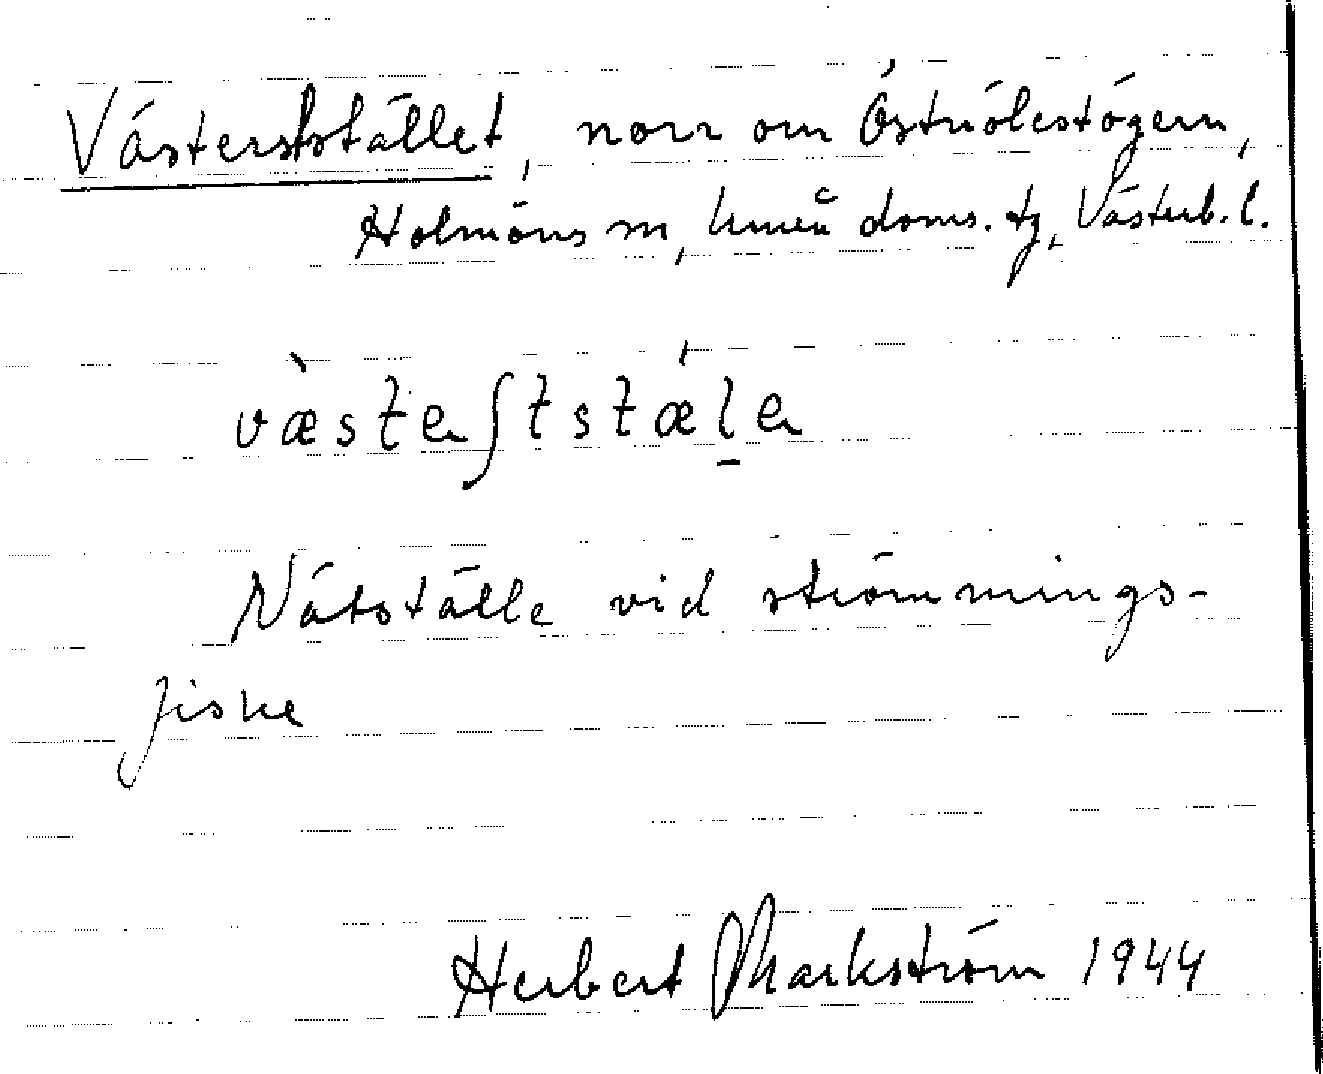 Västerststället, norr om Östriólestögern,
Holmöns sn, Umeå doms. tg, Västerb. l.
væsteʃtstæle
Nätställe vid strömmings-
fiske
Herbert Markström 1944